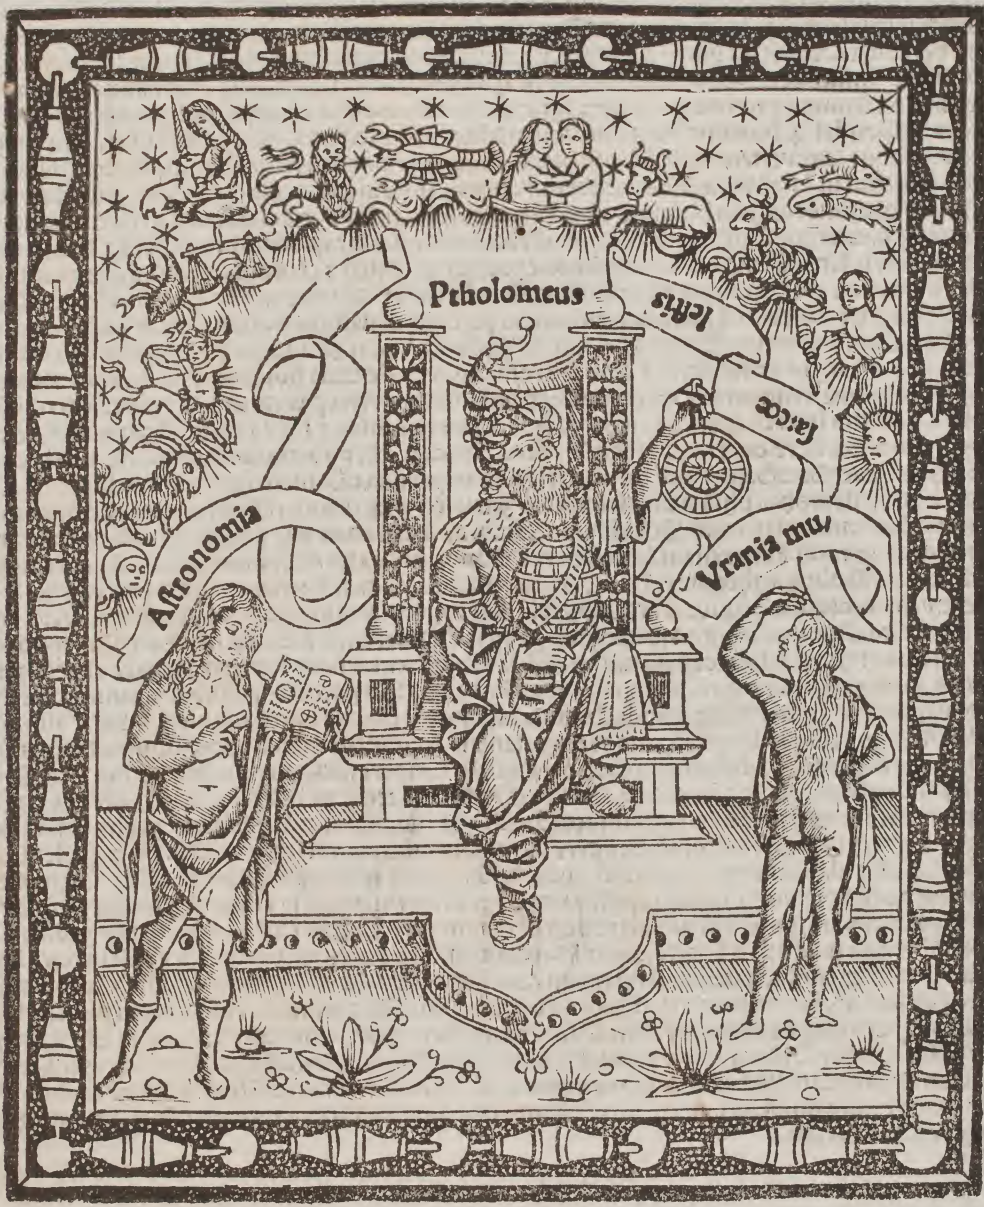 Ptholomeus
Aſtronomia
Vrania mu,
ſa:cœ
leſtis